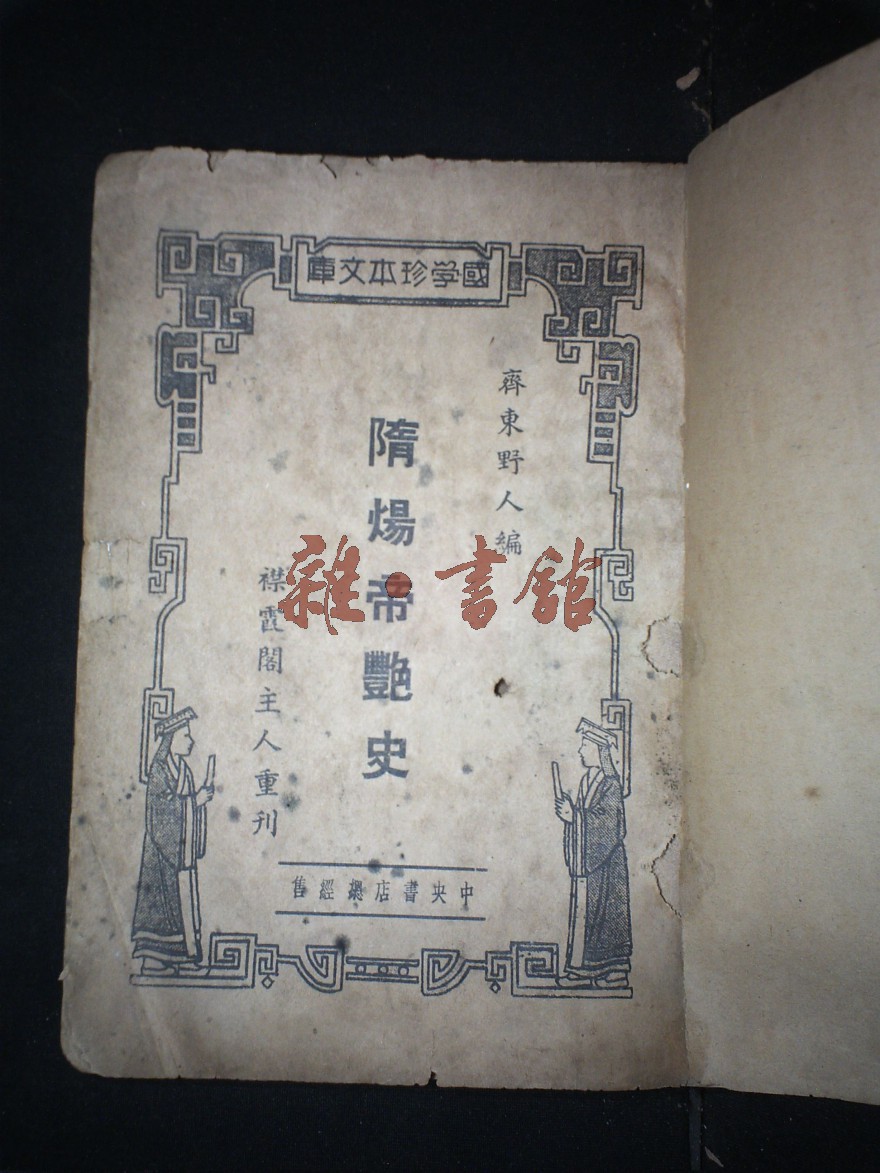 國学珍本文庫
齊東野人編
隋煬帝艷史
襟霞閣主人重刊
中央書店總經售
雜·書舘